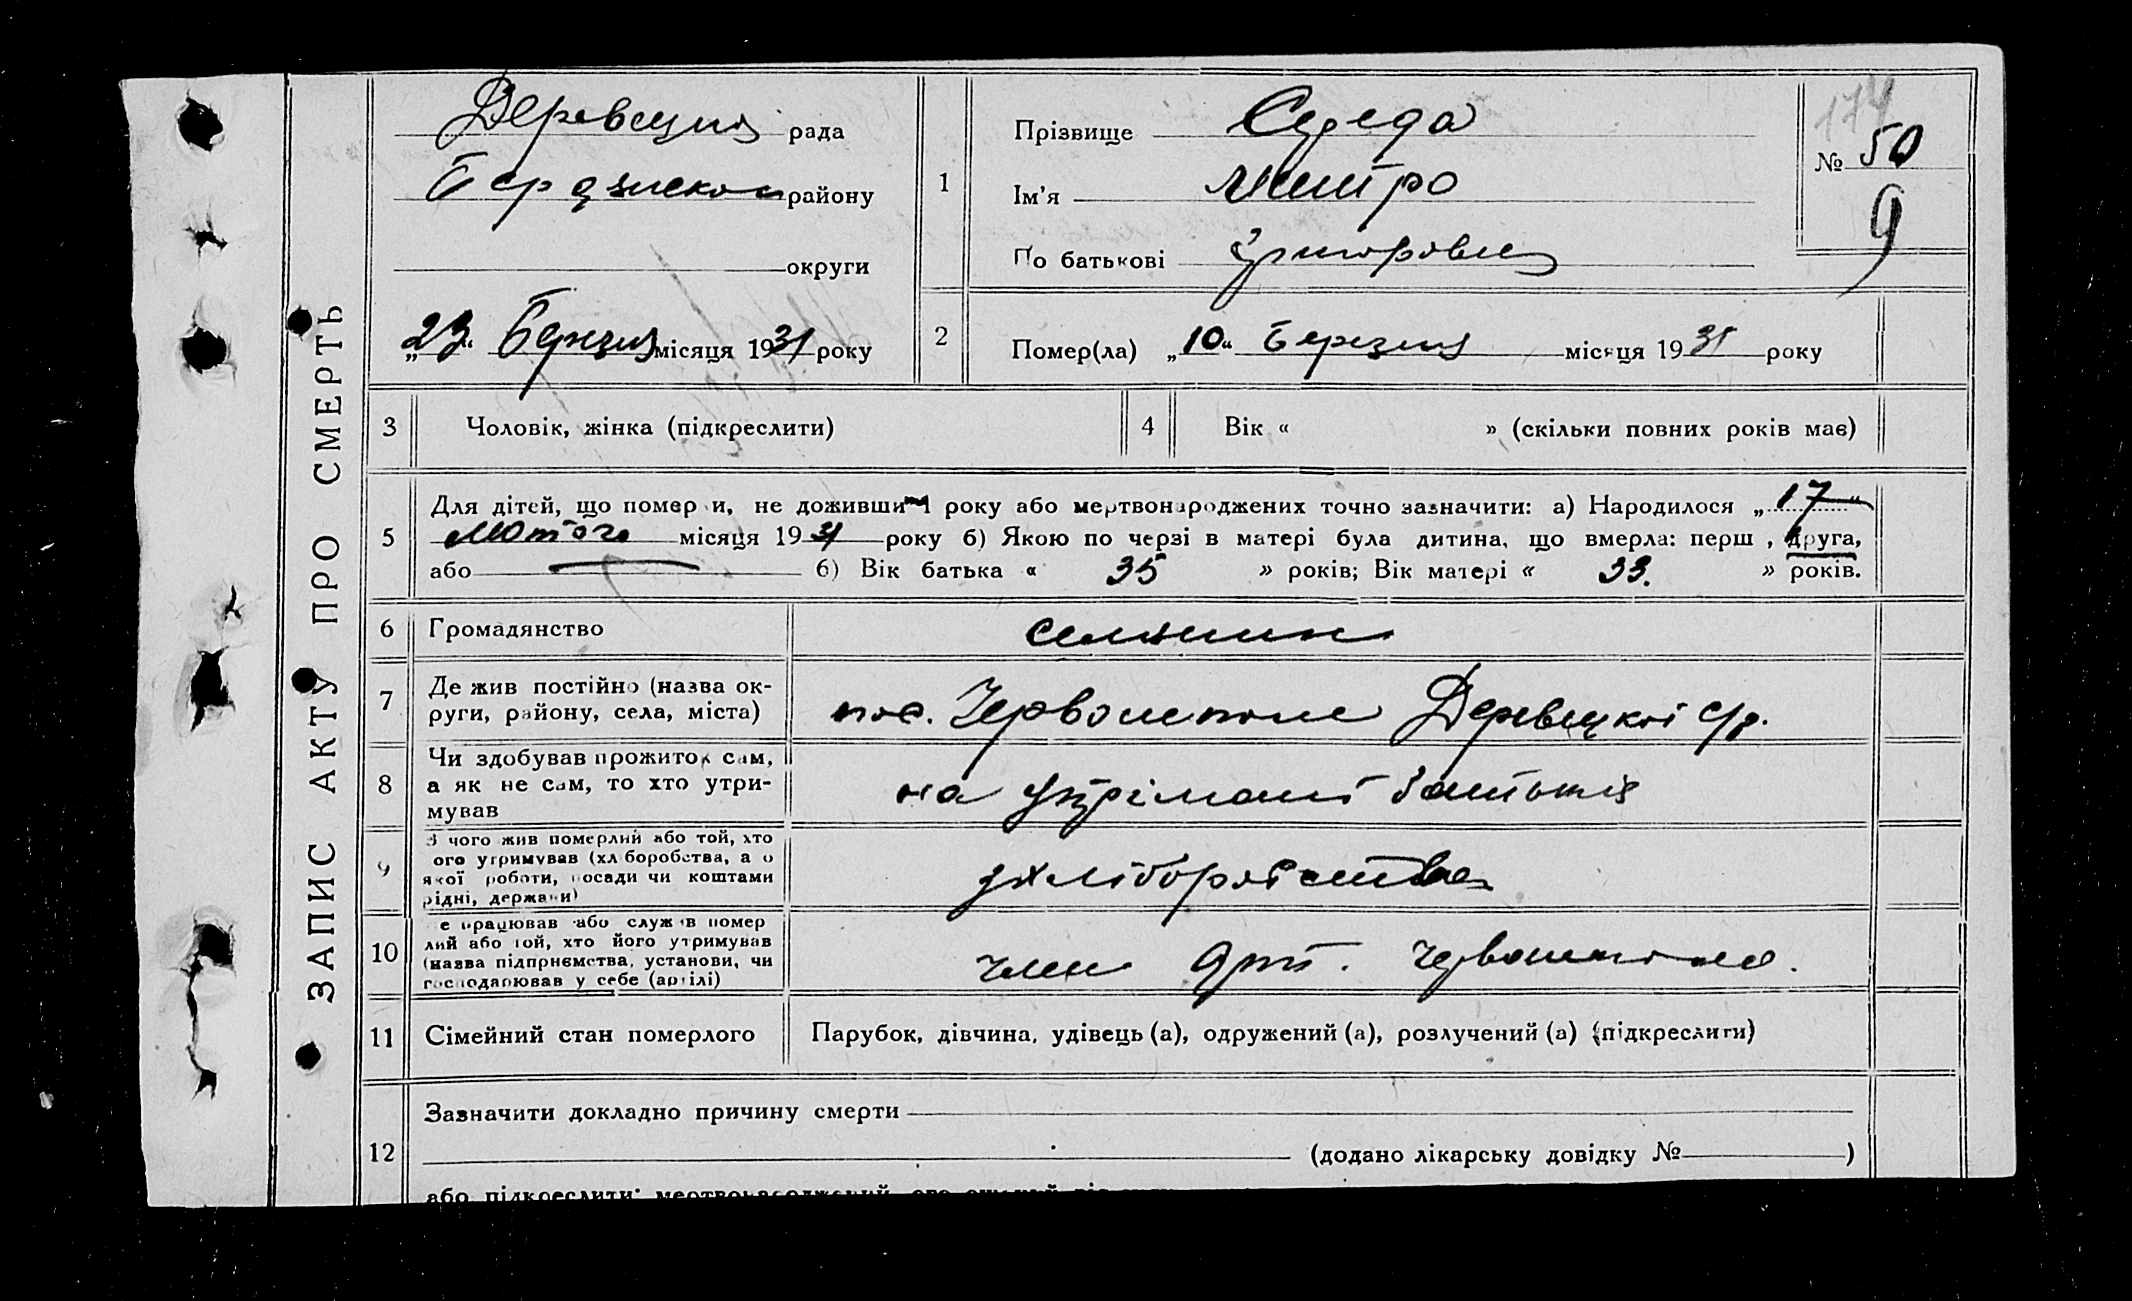 ЗАПИС АКТУ ПРО СМЕРТЬ
Деревецька рада
Бердянського району
округи
„23“ Березня місяця 1931 року
1
Прізвище Середа
Ім'я Митро
По батькові Григорович
174
№ 50
9
2
Помер(ла) „10“ Березня місяця 1931 року
3 Чоловік, жінка (підкреслити)
4 Вік « » (скільки повних років має)
5
Для дітей, що померли, не доживши 1 року або мертвонароджених точно зазначити: а) Народилося „17“
Лютого місяця 1931 року б) Якою по черзі в матері була дитина, що вмерла: перша, друга,
або — б) Вік батька « 35 » років; Вік матері « 33. » років.
6 Громадянство селянин
7 Де жив постійно (назва ок-
руги, району, села, міста)
пос. Червонеполе Деревецкої с/р.
8 Чи здобував прожиток сам,
а як не сам, то хто утри-
мував
на утрімані батьків
9 З чого жив померлий або той, хто
його утримував (хліборобства, або
якої роботи, посади чи коштами
рідні, держави)
з хліборобства
10 Де працював або служив помер
лий або той, хто його утримував
(назва підприємства, установи, чи
господарював у себе (артілі)
член арт. Червонеполе.
11 Сімейний стан померлого Парубок, дівчина, удівець (а), одружений (а), розлучений (а) (підкреслити)
12
Зазначити докладно причину смерти
(додано лікарську довідку № )
або підкреслити: мертвонароджений,